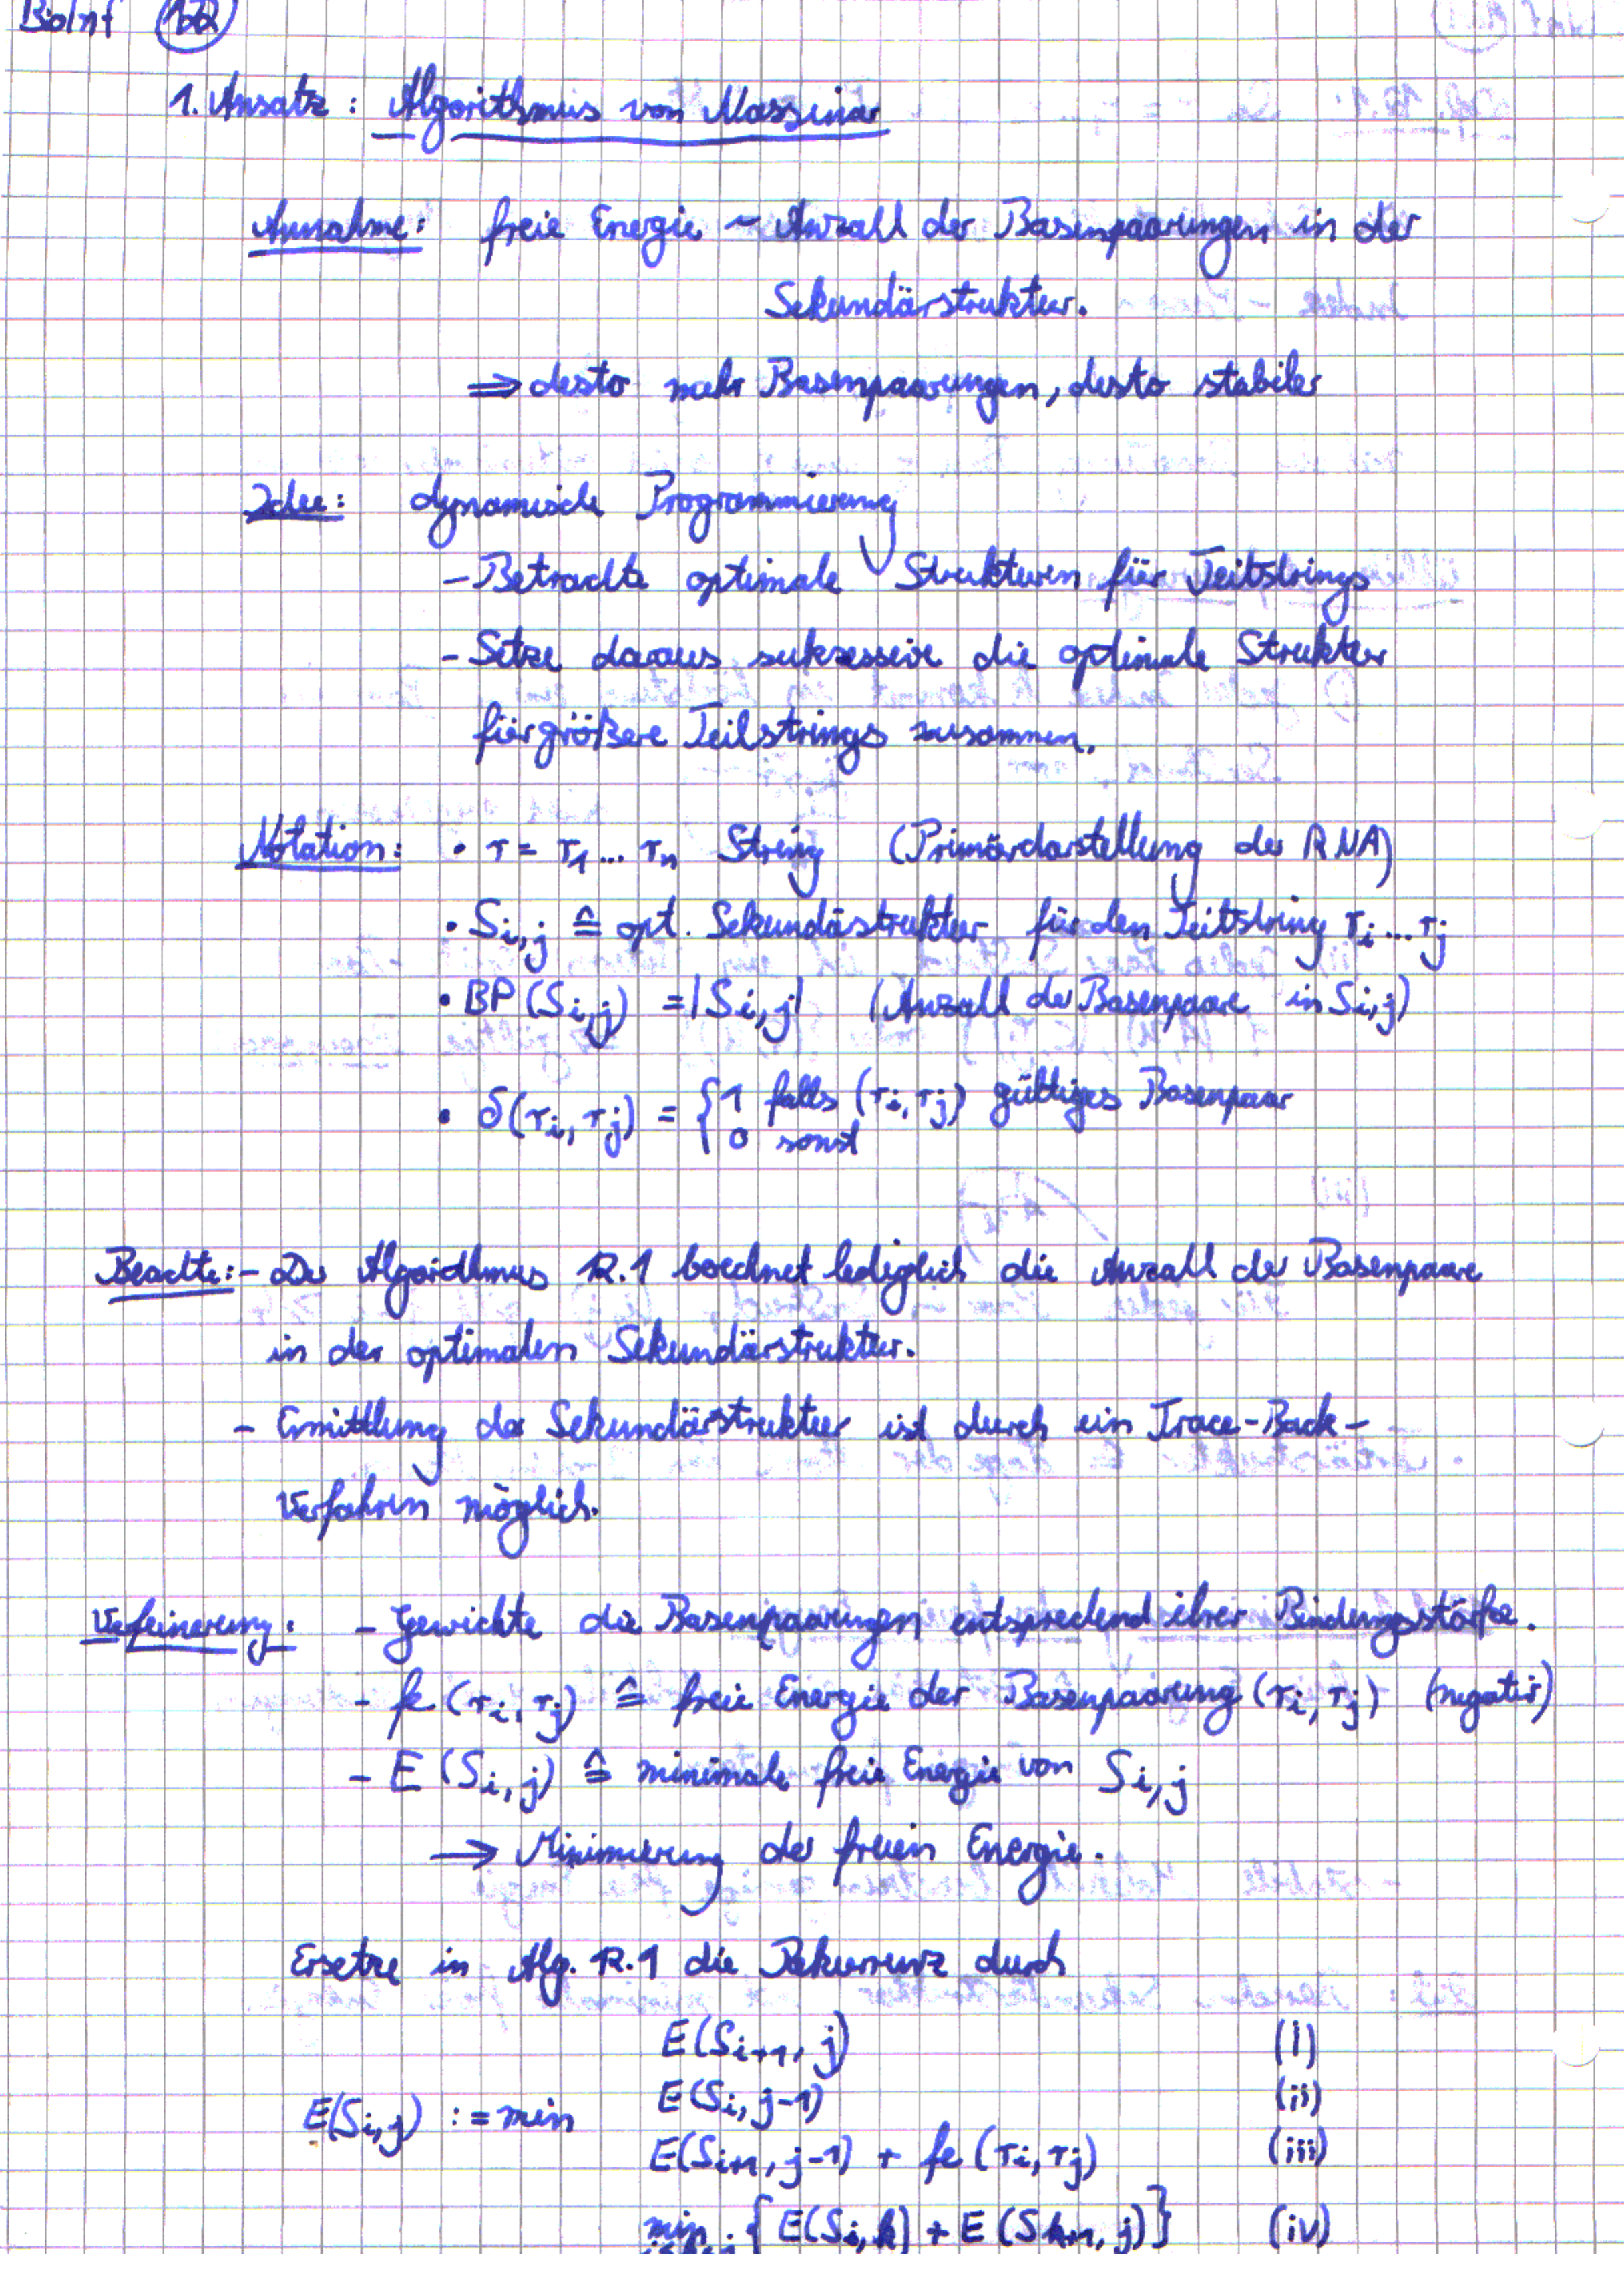 BioInf
1. Ansatz: Algorithmus von Nussinov
Annahme: freie Energie ~ Anzahl der Basenpaarungen in der
Sekundärstruktur.
⇒ desto mehr Basenpaarungen, desto stabiler
Idee: dynamische Programmierung
- Betrachte optimale Strukturen für Teilstrings
- Setze daraus sukzessive die optimale Struktur
für größere Teilstrings zusammen.
Notation: • r = r₁ ... rₙ String (Primärdarstellung der RNA)
• S_{i,j} ≙ opt. Sekundärstruktur für den Teilstring r_i ... r_j
• BP(S_{i,j}) = |S_{i,j}| (Anzahl der Basenpaare in S_{i,j})
• δ(r_i, r_j) = { 1 falls (r_i, r_j) gültiges Basenpaar
0 sonst
Beachte: - Der Algorithmus 12.1 berechnet lediglich die Anzahl der Basenpaare
in der optimalen Sekundärstruktur.
- Ermittlung der Sekundärstruktur ist durch ein Trace-Back-
Verfahren möglich.
Verfeinerung: - Gewichte die Basenpaarungen entsprechend ihrer Bindungsstärke.
- fe(r_i, r_j) ≙ freie Energie der Basenpaarung (r_i, r_j) (negativ)
- E(S_{i,j}) ≙ minimale freie Energie von S_{i,j}
→ Minimierung der freien Energie.
Ersetze in Alg. 12.1 die Rekurrenz durch
E(S_{i+1,j}) (i)
E(S_{i,j-1}) (ii)
E(S_{i,j}) := min
E(S_{i+1,j-1}) + fe(r_i, r_j) (iii)
min { E(S_{i,k}) + E(S_{k+1,j}) } (iv)